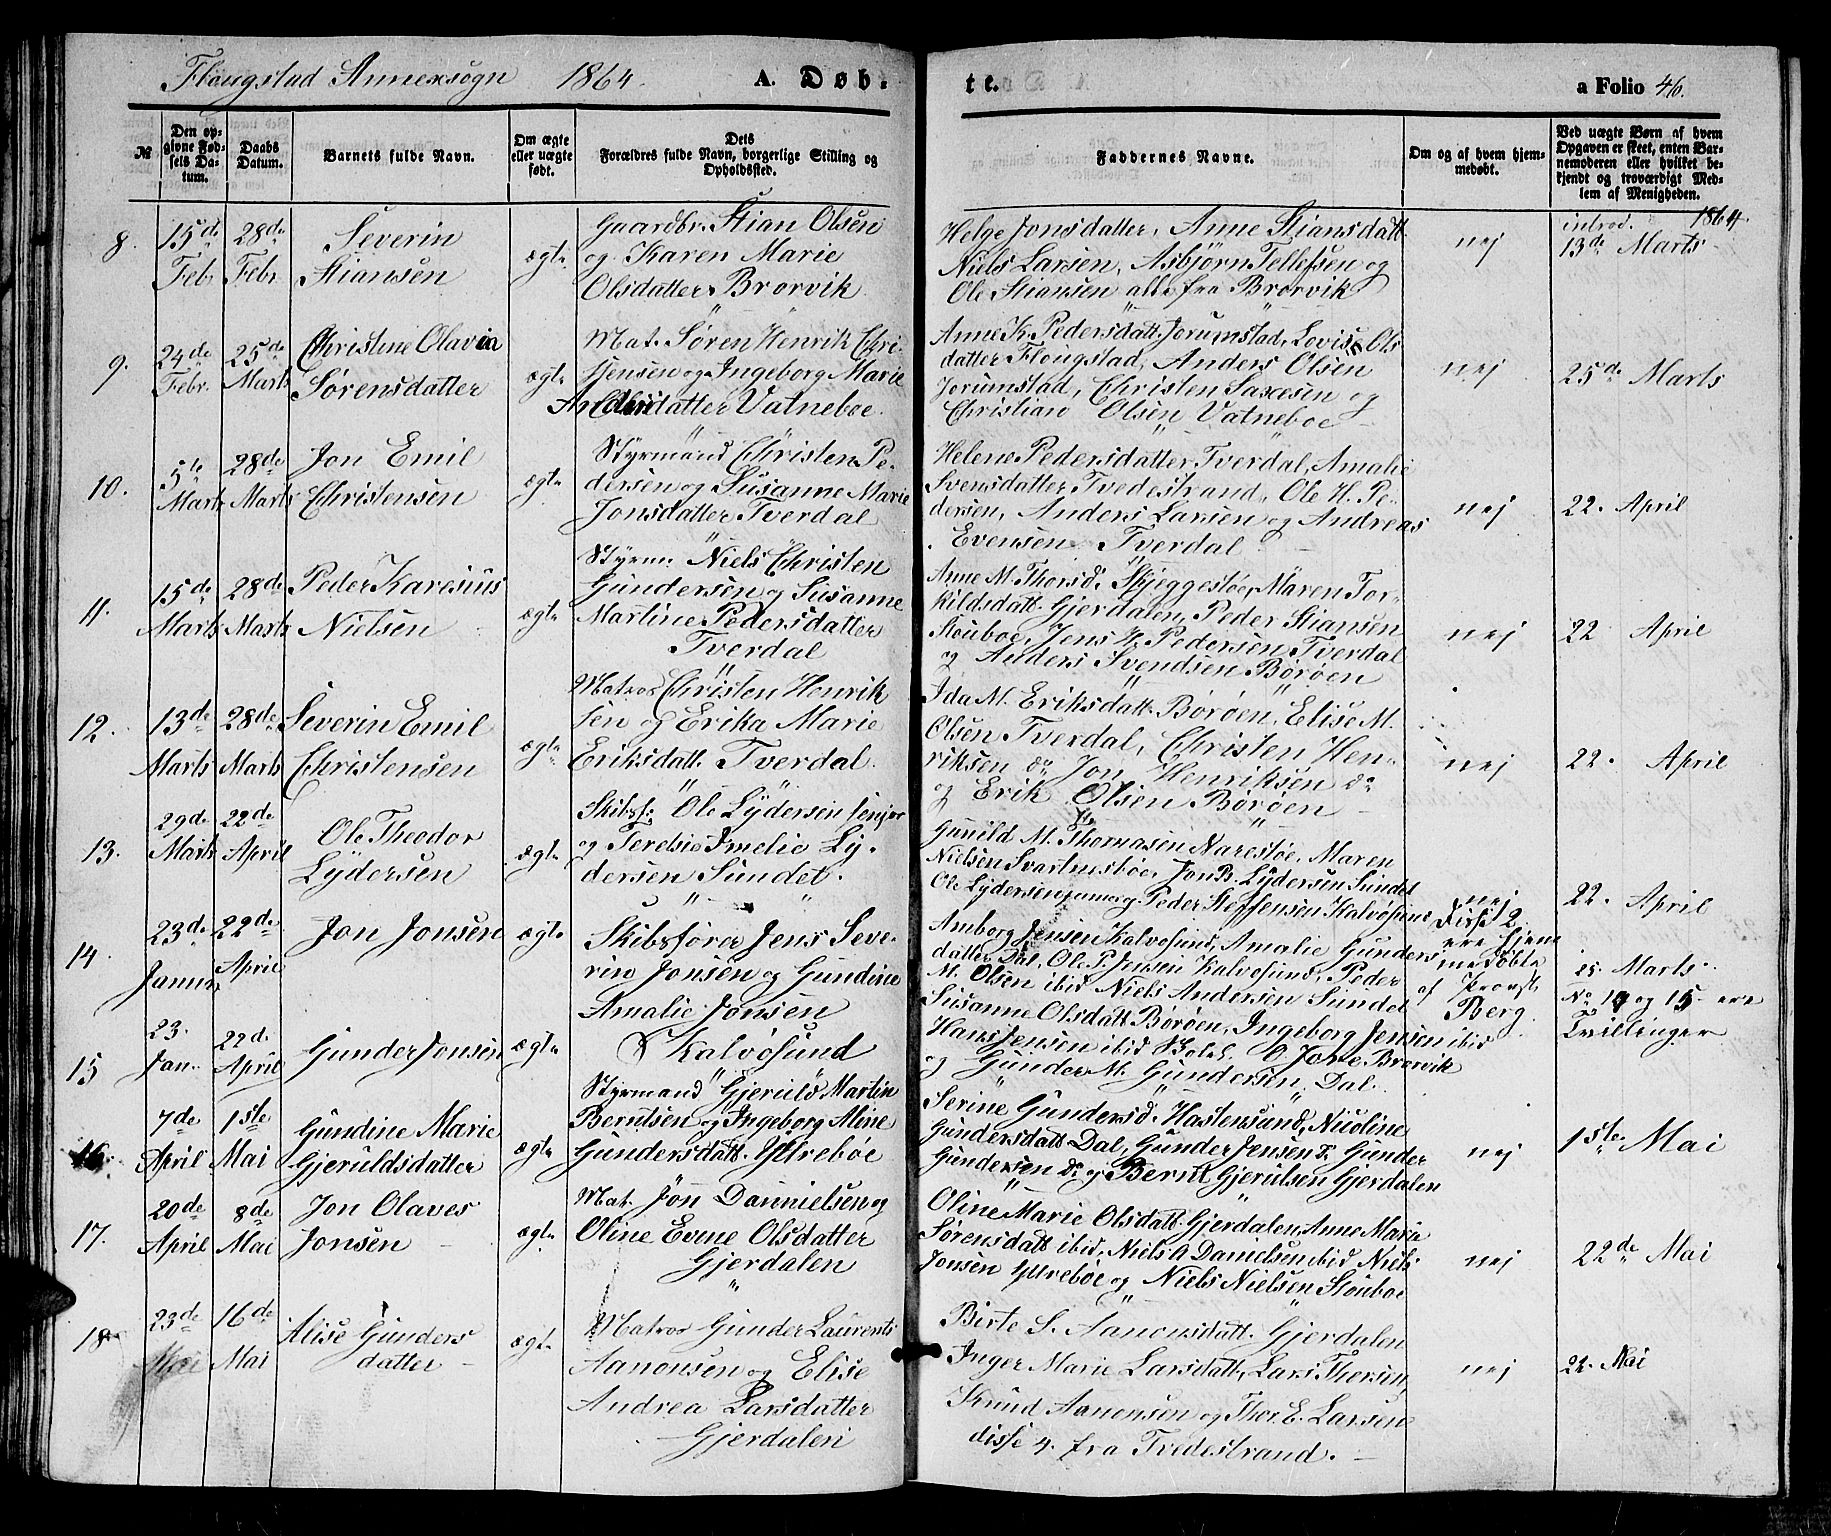 Flougstad Annexsogn 1864. A. Døb-
te. a Folio 46.
№
Den op-
givne Fød-
sels Da-
tum.
Daabs
Datum.
Barnets fulde Navn.
Om ægte
eller uægte
født.
Dets
Forældres fulde Navn, borgerlige Stilling og
Opholdssted.
Faddernes Navne.
Om og af hvem hjem-
medøbt.
Ved uægte Børn af hvem
Opgaven er skeet, enten Bar-
nemoderen eller hvilket be-
kjendt og troværdigt Med-
lem af Menigheden.
8.
15de
Febr
28de
Febr.
Severin
Stiansen
ægte
Gaardbr. Stian Olsen
og Karen Marie
Olsdatter Brorvik
Helge Jonsdatter, Anne Stiansdatt.
Niels Larsen, Asbjørn Tellefsen og
Ole Stiansen alle fra Brorvik
nej
introd. 1864.
13de Marts
9.
24de
Febr.
25de
Marts
Christine Olavia
Sørensdatter
ægte
Mat. Søren Henrik Chri-
stensen og Ingeborg Marie
Andersdatter Vatneboe.
Anne K. Pedersdatt. Jorumstad, Lovise Ols
datter Flougstad, Anders Olsen
Jorumstad, Christen Saxesen og
Christian Olsen Vatneboe
nej
25de Marts
10.
5te
Marts
28de
Marts
Jon Emil
Christensen
ægte
Styrmand Christen Pe-
dersen og Susanne Marie
Jonsdatter Tverdal
Helene Pedersdatter Tverdal, Amalie
Svensdatter Tvedestrand, Ole H. Pe-
dersen, Anders Larsen og Andreas
Evensen Tverdal
nej
22. April
11.
15de
Marts
28de
Marts
Peder Karesius
Nielsen
ægte
Styrm. Niels Christen
Gundersen og Susanne
Martine Pedersdatter
Tverdal
Anne M. Thorsd. Skjeggestøe, Maren Tor-
kildsdatt. Gjerdalen, Peder Stiansen
Stouboe, Jens H. Pedersen, Tverdal
og Anders Svendsen Børøen
nej
22 April
12.
13de
Marts
28de
Marts
Severin Emil
Christensen
ægte
Matros Christen Henrik
sen og Erika Marie
Eriksdatt. Tverdal.
Ida M. Eriksdatt. Børøen, Elise M.
Olsen Tverdal, Christen Hen-
riksen do Jon Henriksen do
og Erik Olsen Børøen
nej
22. April
13.
29de
Marts
22de
April
Ole Theodor
Lydersen
ægte
Skibsf. Ole Lydersen senjor
og Teresie Amelie Ly-
dersen Sundet.
Gunild M. Thomasen Narestøe, Maren
Nielsen Svartnesbøe, Jon B. Lydersen Sundet
Ole Lydersen junior og Peder Steffensen Kalvøsund
nej
22. April
14
23de
Januar
22de
April
Jon Jonsen
ægte
Skibsfører Jens Seve-
rin Jonsen og Gundine
Amalie Jonsen
Kalvøsund
Amborg Jensen Kalvøsund, Amalie Gunders
datter Dal, Ole P. Jensen Kalvøsund, Peder
M. Olsen ibid Niels Andersen Sundet
Disse 2
ere hjem
medøbte
af Provst
Berg.
25. Marts
No 14 og 15 ere
Tvillinger
15
23.
Jan.
22de
April
Gunder Jonsen
ægte
Susanne Olsdatt. Børøen, Ingeborg Jensen ibid
Hans Jensen ibid O. Jone Brorvik
og Gunder M. Gundersen, Dal.
16.
7de
April
1ste
Mai
Gundine Marie
Gjeruldsdatter
ægte
Styrmand Gjeruld Martin
Berntsen og Ingeborg Aline
Gundersdatt. Yttrebøe
Serine Gundersd. Hastensund, Nicoline
Gundersdatt Dal, Gunder Jensen do Gunder
Gundersen do og Bernt Gjerulsen Gjerdalen
nej
15te Mai
17.
20de
April
8de
Mai
Jon Olaves
Jonsen
ægte
Mat. Jon Dannielsen og
Oline Evine Olsdatter
Gjerdalen
Oline Marie Olsdatt. Gjerdalen, Anne Marie
Sørensdatt ibid, Niels A Danielsen ibid, Niels
Jonsen Yttrebøe og Niels Nielsen Stouboe
nej
22de Mai
18
23de
Mai
16de
Mai
Alise Gunders
datter
ægte
Matros Gunder Laurents
Aanonsen og Elise
Andrea Larsdatter
Gjerdalen
Birte S. Aanonsdatt. Gjerdalen
Inger Marie Larsdatt., Lars Thorsen,
Knud Aanonsen og Thor E. Larsen
disse 4. fra Tvedestrand.
nej
22. Mai